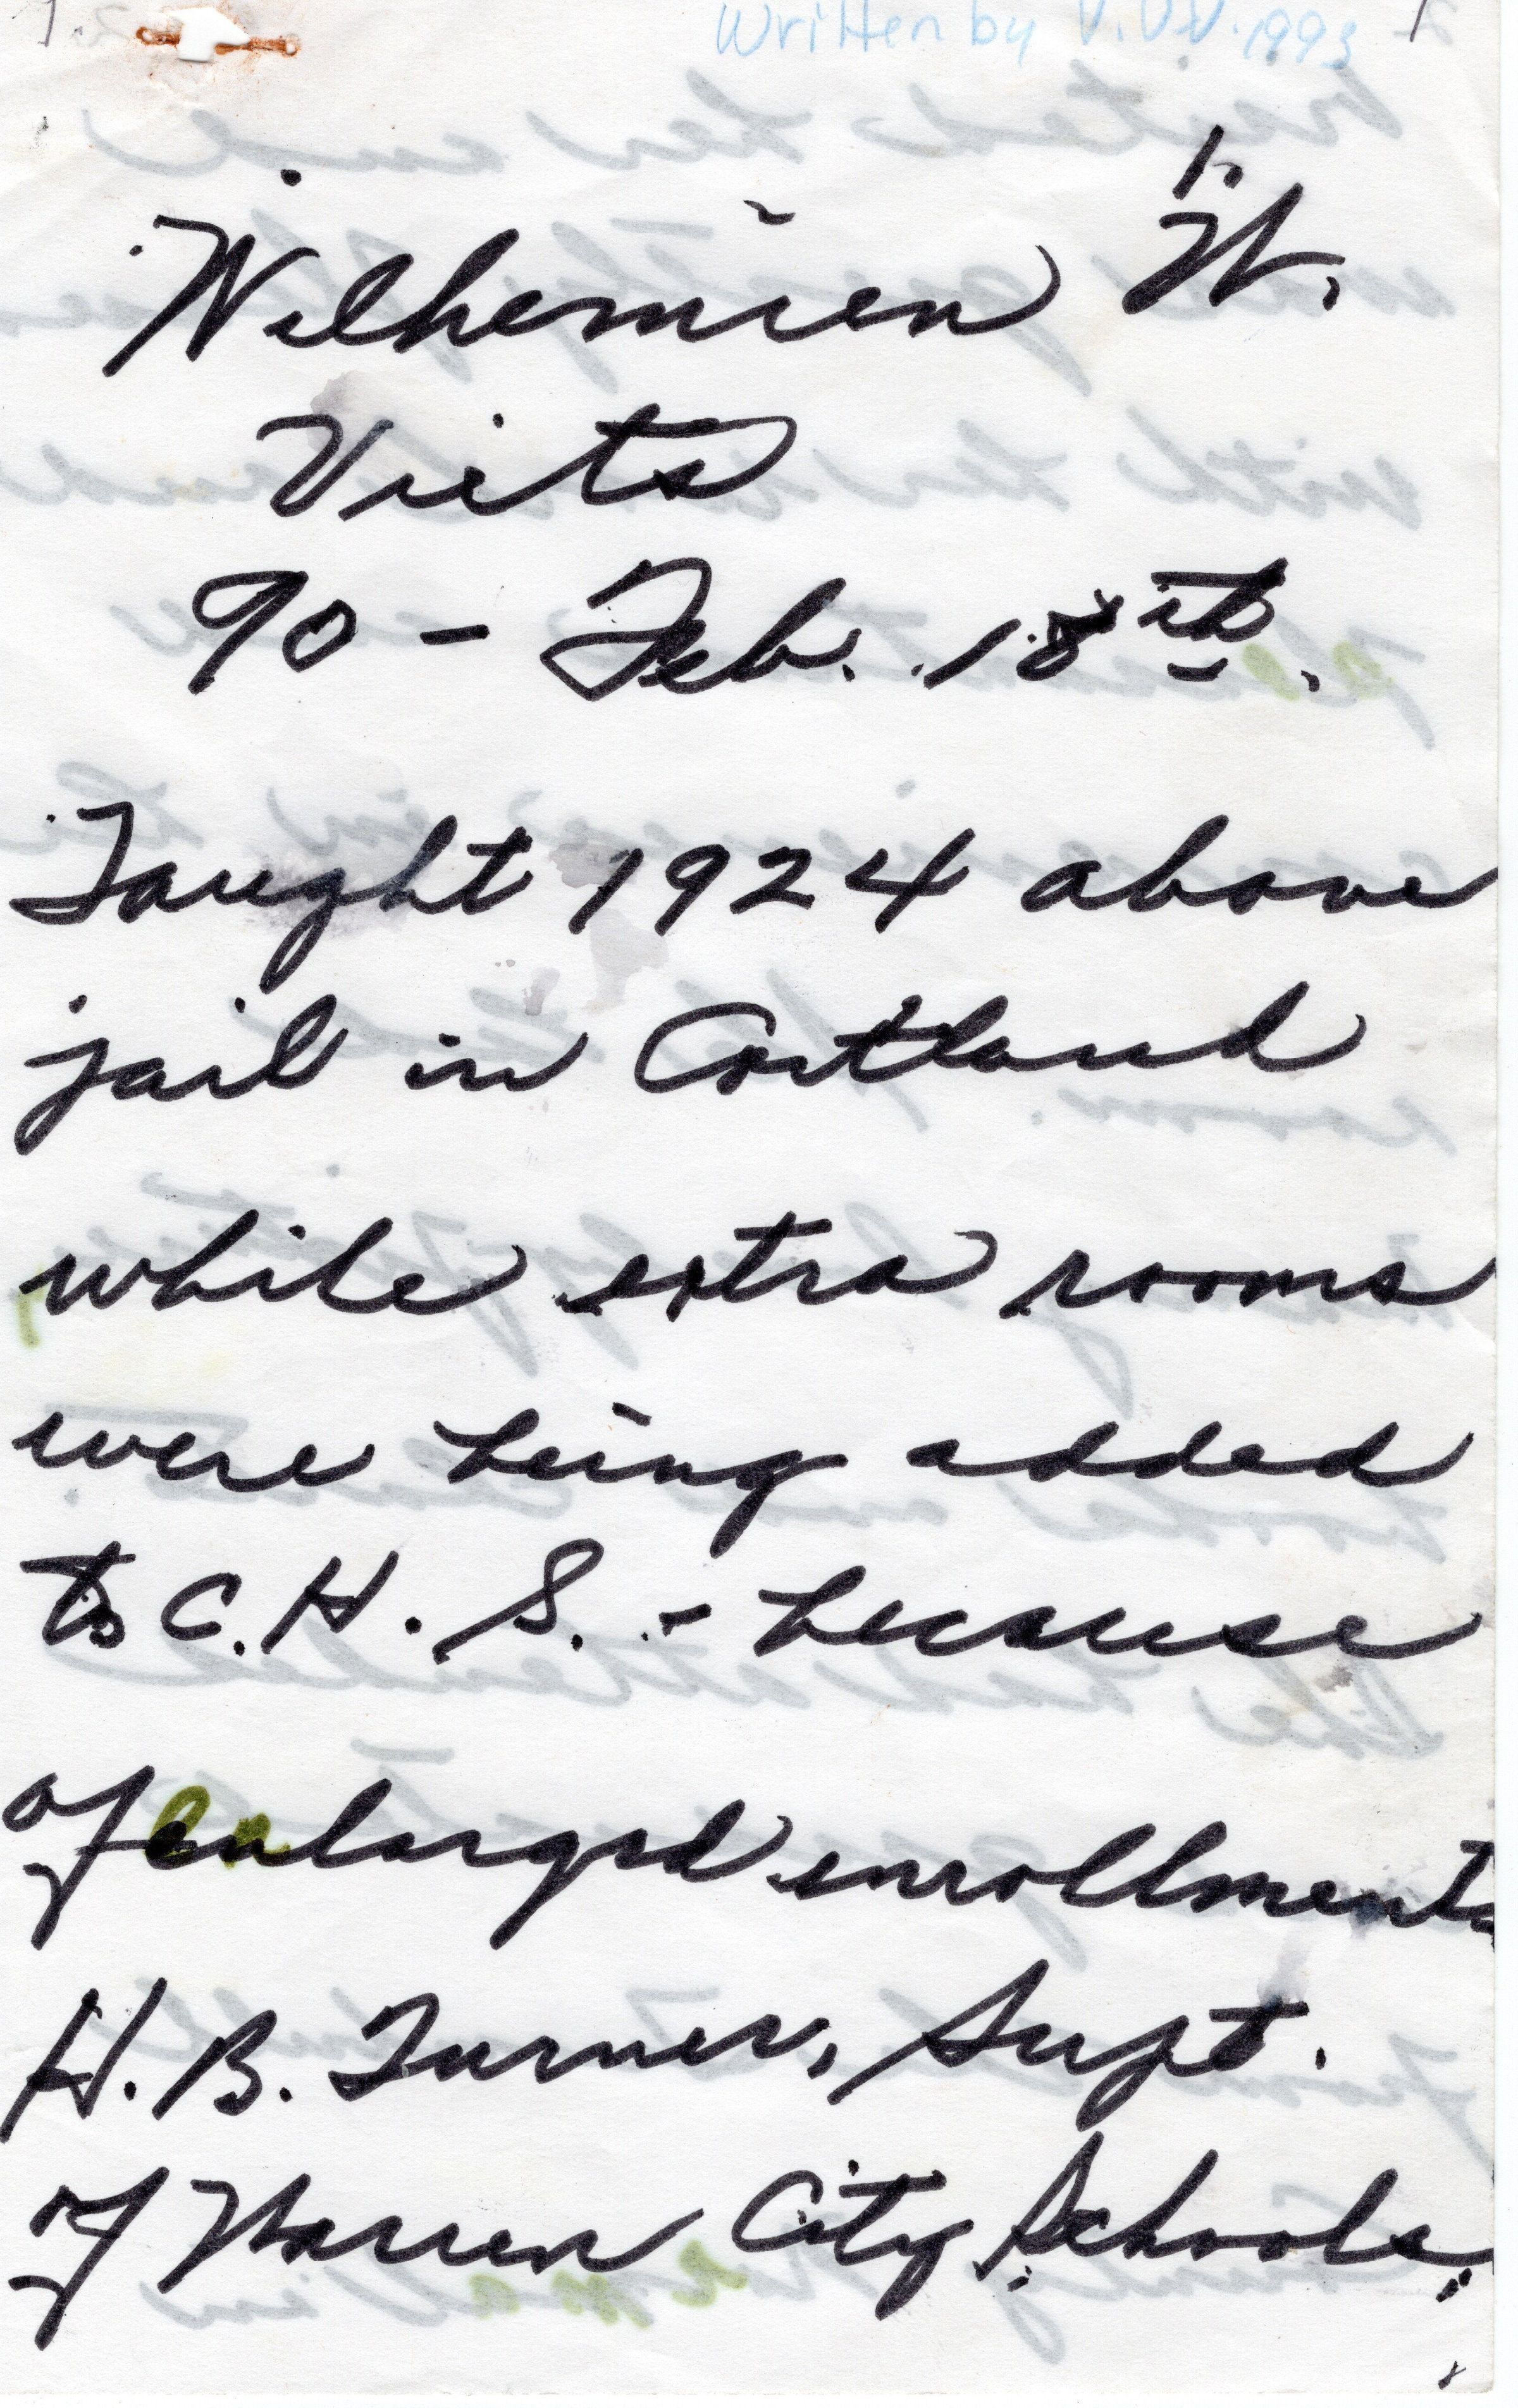 Written by V.V.V. 1993
1.
Wilhemien W.
Viets
90 - Feb. 18th.
Taught 1924 above
jail in Cortland
while extra rooms
were being added
to C. H. S. - because
of enlarged enrollments
H. B. Turner, Supt.
of Warren City Schools,